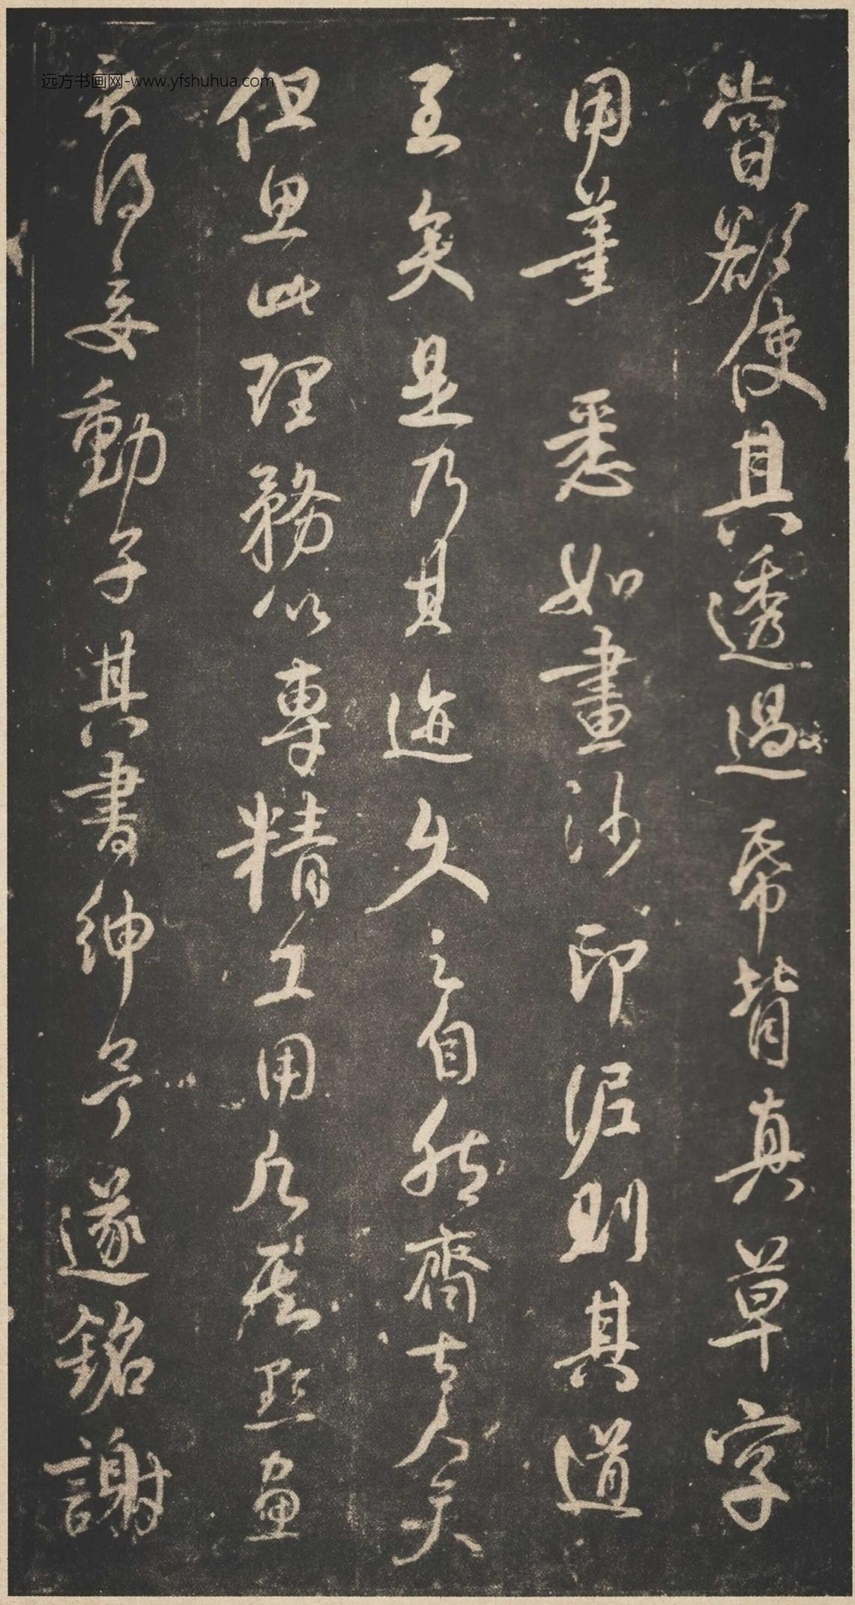 甞欲使其透過帋背真草字
用筆悉如畫沙印泥則其道
至矣是乃其迹久之自然齊古人矣
但思此理務以專精工用故其點畫
不得妄動子其書紳余遂銘謝
远方书画网-www.yfshuhua.com